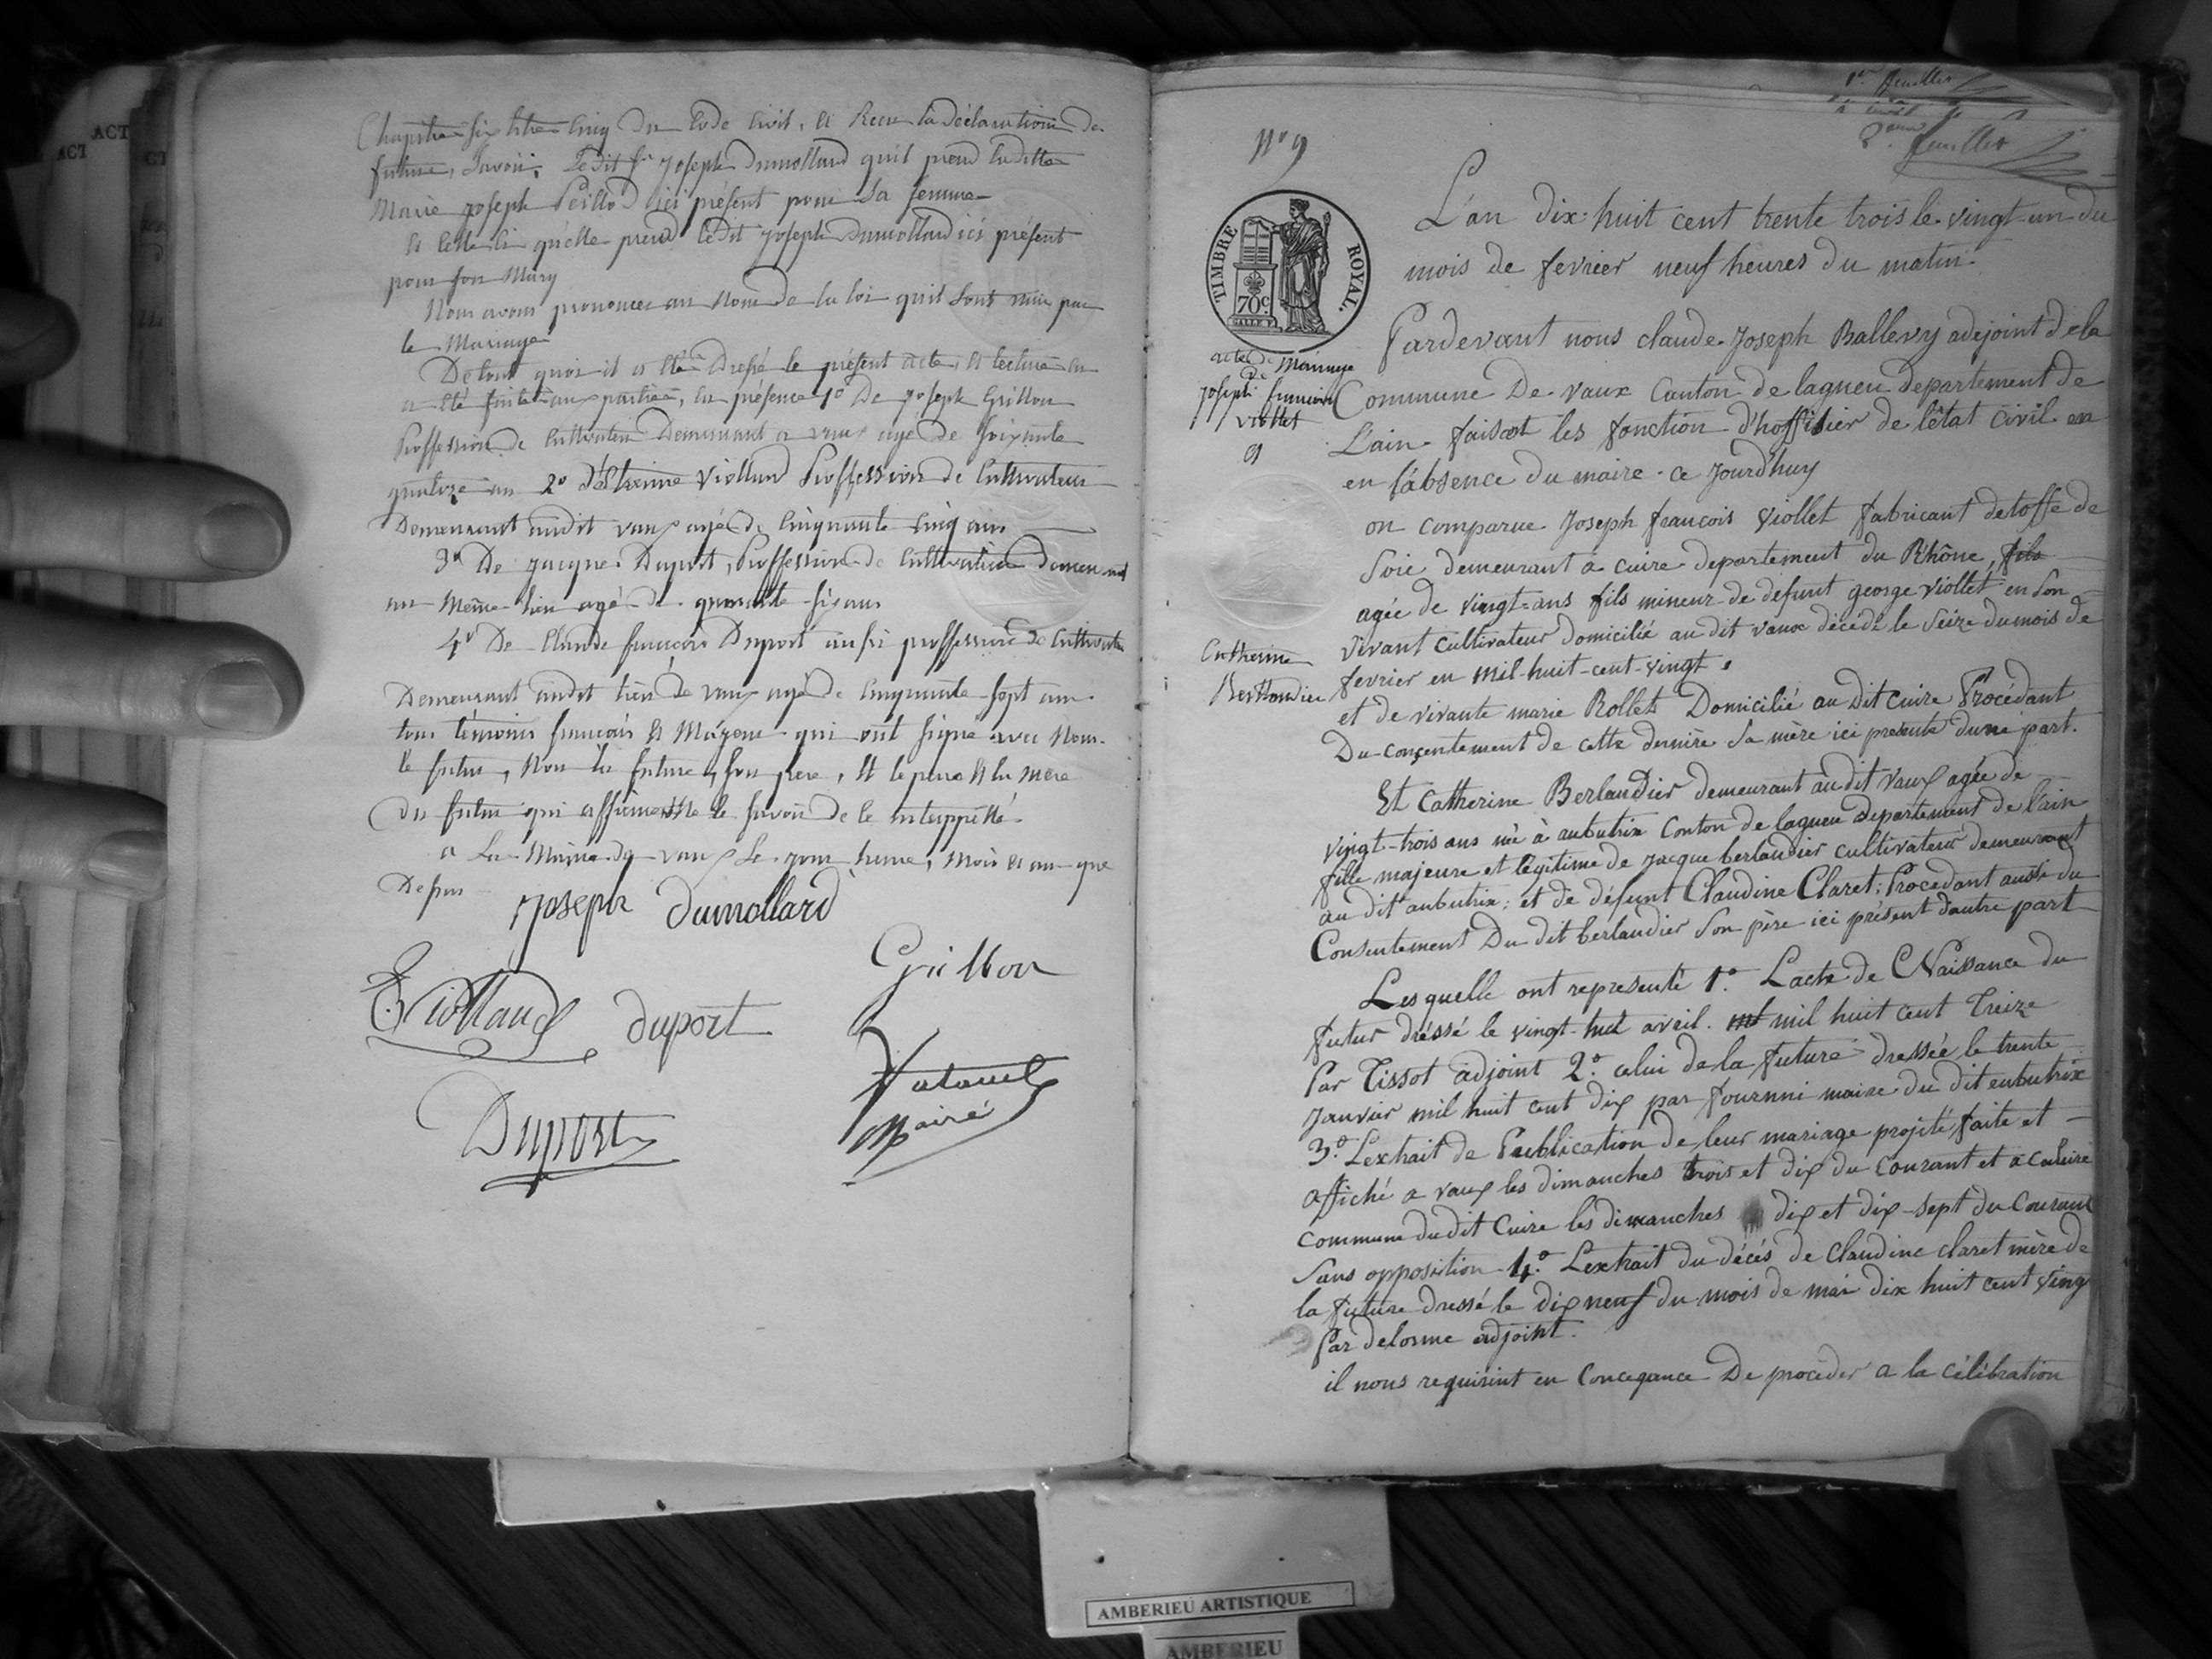 ACT
ACT
CT
Chapitre six titre cinq du Code Civil, et Recu la déclaration de
future, Savoir, Ledit Sr Joseph Dumollard quil prend laditte
Marie Joseph Peillod ici présent pour Sa femme
Et Celle ci quelle prend ledit Joseph Dumollard ici présent
pour son Mary
Nous avons prononcer au Nom de la loi quil Sont unie par
le Mariage
De tout quoi il a été Dressé le présent acte, et lecture en
a été faite aux parties, en présence 1º De Joseph Grillon
Proffession de Cultivateur Demeurant a vaux agé de Soixante
quatorze an 2º d'Etienne Violland Proffession de Cultivateur
Demeurant audit vaux agé de Cinquante Cinq ans
3º De Jacque Duport, Proffession de Cultivateur demeurant
au Même lieu agé de quarante six ans
4º De Claude françois Duport aussi proffession de Cultivateur
Demeurant audit lieu de vaux agé de Cinquante sept ans
tous témoins françois et Majeur qui ont signé avec Nous
le futur, Non la future, son pere, et le pere et la mere
du futur qui
a La Mairie de vaux Le jour heure, Mois et an que
Dessus
Joseph Dumollard
Grillon
E. Violland
duport
Duport
Maire
1er feuillet
2eme feuillet
Nº 9
TIMBRE ROYAL.
70c.
acte de Mariage
de
Joseph françois
viollet
et
Catherine
Berlandier
L'an dix-huit cent trente trois le vingt-un du
mois de fevrier neuf heures du matin.
Pardevant nous claude Joseph Ballevy adejoint de la
Commune De vaux Canton de lagneu departement de
L'ain faisant les fonction d'hoffisier de l'état civil en
en l'absence du maire ce jourd'huy
on comparue Joseph françois Viollet fabricant detoffe de
Soie demeurant a cuire departement du Rhône, fils
agée de vingt-ans fils mineur de defunt george viollet en Son
vivant cultivateur domicilié au dit vaux décédé le Seize du mois de
fevrier en mil-huit-cent-vingt.
et de vivante marie Rollet Domicilié au Dit Cuire Procédant
Du conçentement de cette dernière Sa mère ici presente dune part.
Et Catherine Berlandier demeurant audit Vaux agée de
vingt-trois ans née à aubutrix Conton de lagneu Departement de l'ain
fille majeure et légitime de jacque berlandier cultivateur demeurant
au dit aubutrix; et de défunt Claudine Claret; Procedant aussi du
Consentement Du dit berlandier Son père ici présent d'autre part
Lesquelle ont representé 1º. Lacte de Naissance du
futur dréssé le vingt-huit avril mil huit cent Treize
Par Tissot adjoint 2º. celui de la future dressée le trente
janvier mil huit cent dix par fournni maire du dit enbutrix
3º. Lextrait de Publication de leur mariage projeté faite et
affiché a vaux les dimanches trois et dix du Courant et a Caluire
commune dudit Cuire les dimanches dix et dix-sept du Courant
Sans opposition 4º. Lextrait du décés de Claudine Claret mère de
la future dressé le dix neuf du mois de mai dix huit cent vingt
Par delorme adjoint.
il nous requirint en Conceqance De proceder a la célébration
AMBERIEU ARTISTIQUE
AMBERIEU